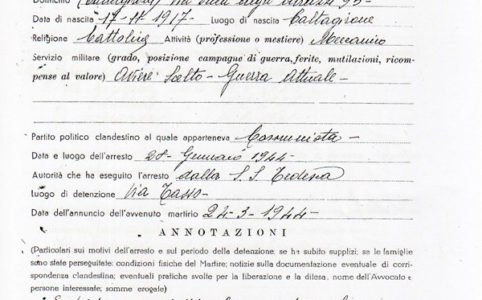 Data di nascita 17-11-1917 Luogo di nascita Caltagirone
Religione Cattolica Attività (professione o mestiere) Meccanico
Servizio militare (grado, posizione campagne di guerra, ferite, mutilazioni, ricom-
pense al valore) Aviere Scelto - Guerra Attuale -
Partito politico clandestino al quale apparteneva Comunista -
Data e luogo dell'arresto 28 Gennaio 1944 -
Autorità che ha eseguito l'arresto dalla S.S. Tedesca
luogo di detenzione Via Tasso -
Data dell'annuncio dell'avvenuto martirio 24-3-1944 -
ANNOTAZIONI
(Particolari sui motivi dell'arresto e sul periodo della detenzione: se ha subito supplizi; se le famiglie
sono state perseguitate: condizioni fisiche del Martire; notizie sulla documentazione eventuale di corri-
spondenza clandestina; eventuali pratiche svolte per la liberazione e la difesa, nome dell'Avvocato e
persone interessate, somme erogate)